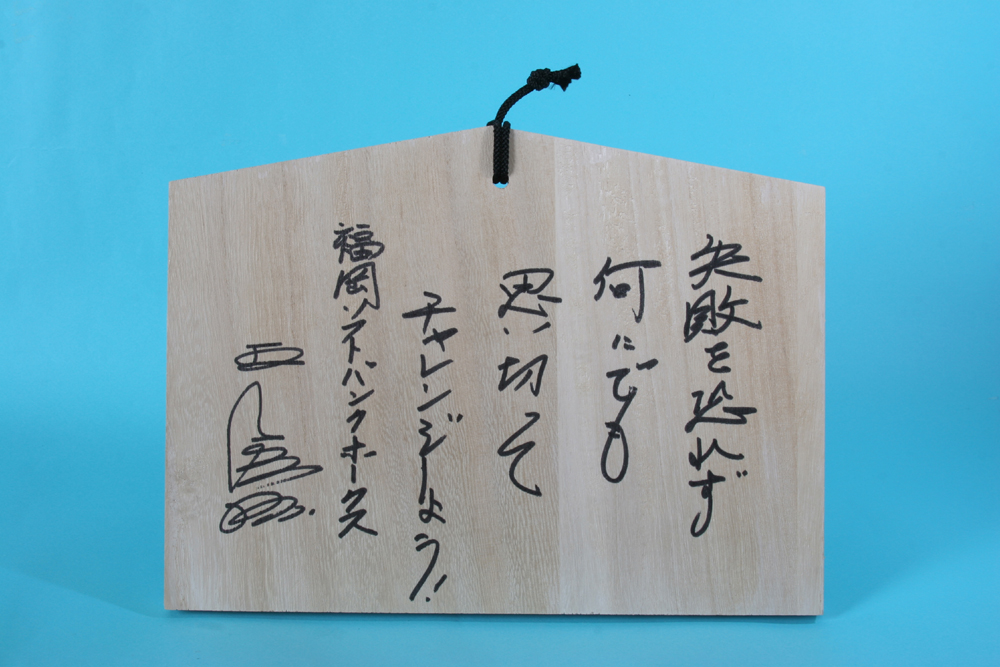 失敗を恐れず
何にでも
思い切って
チャレンジしよう!
福岡ソフトバンクホークス